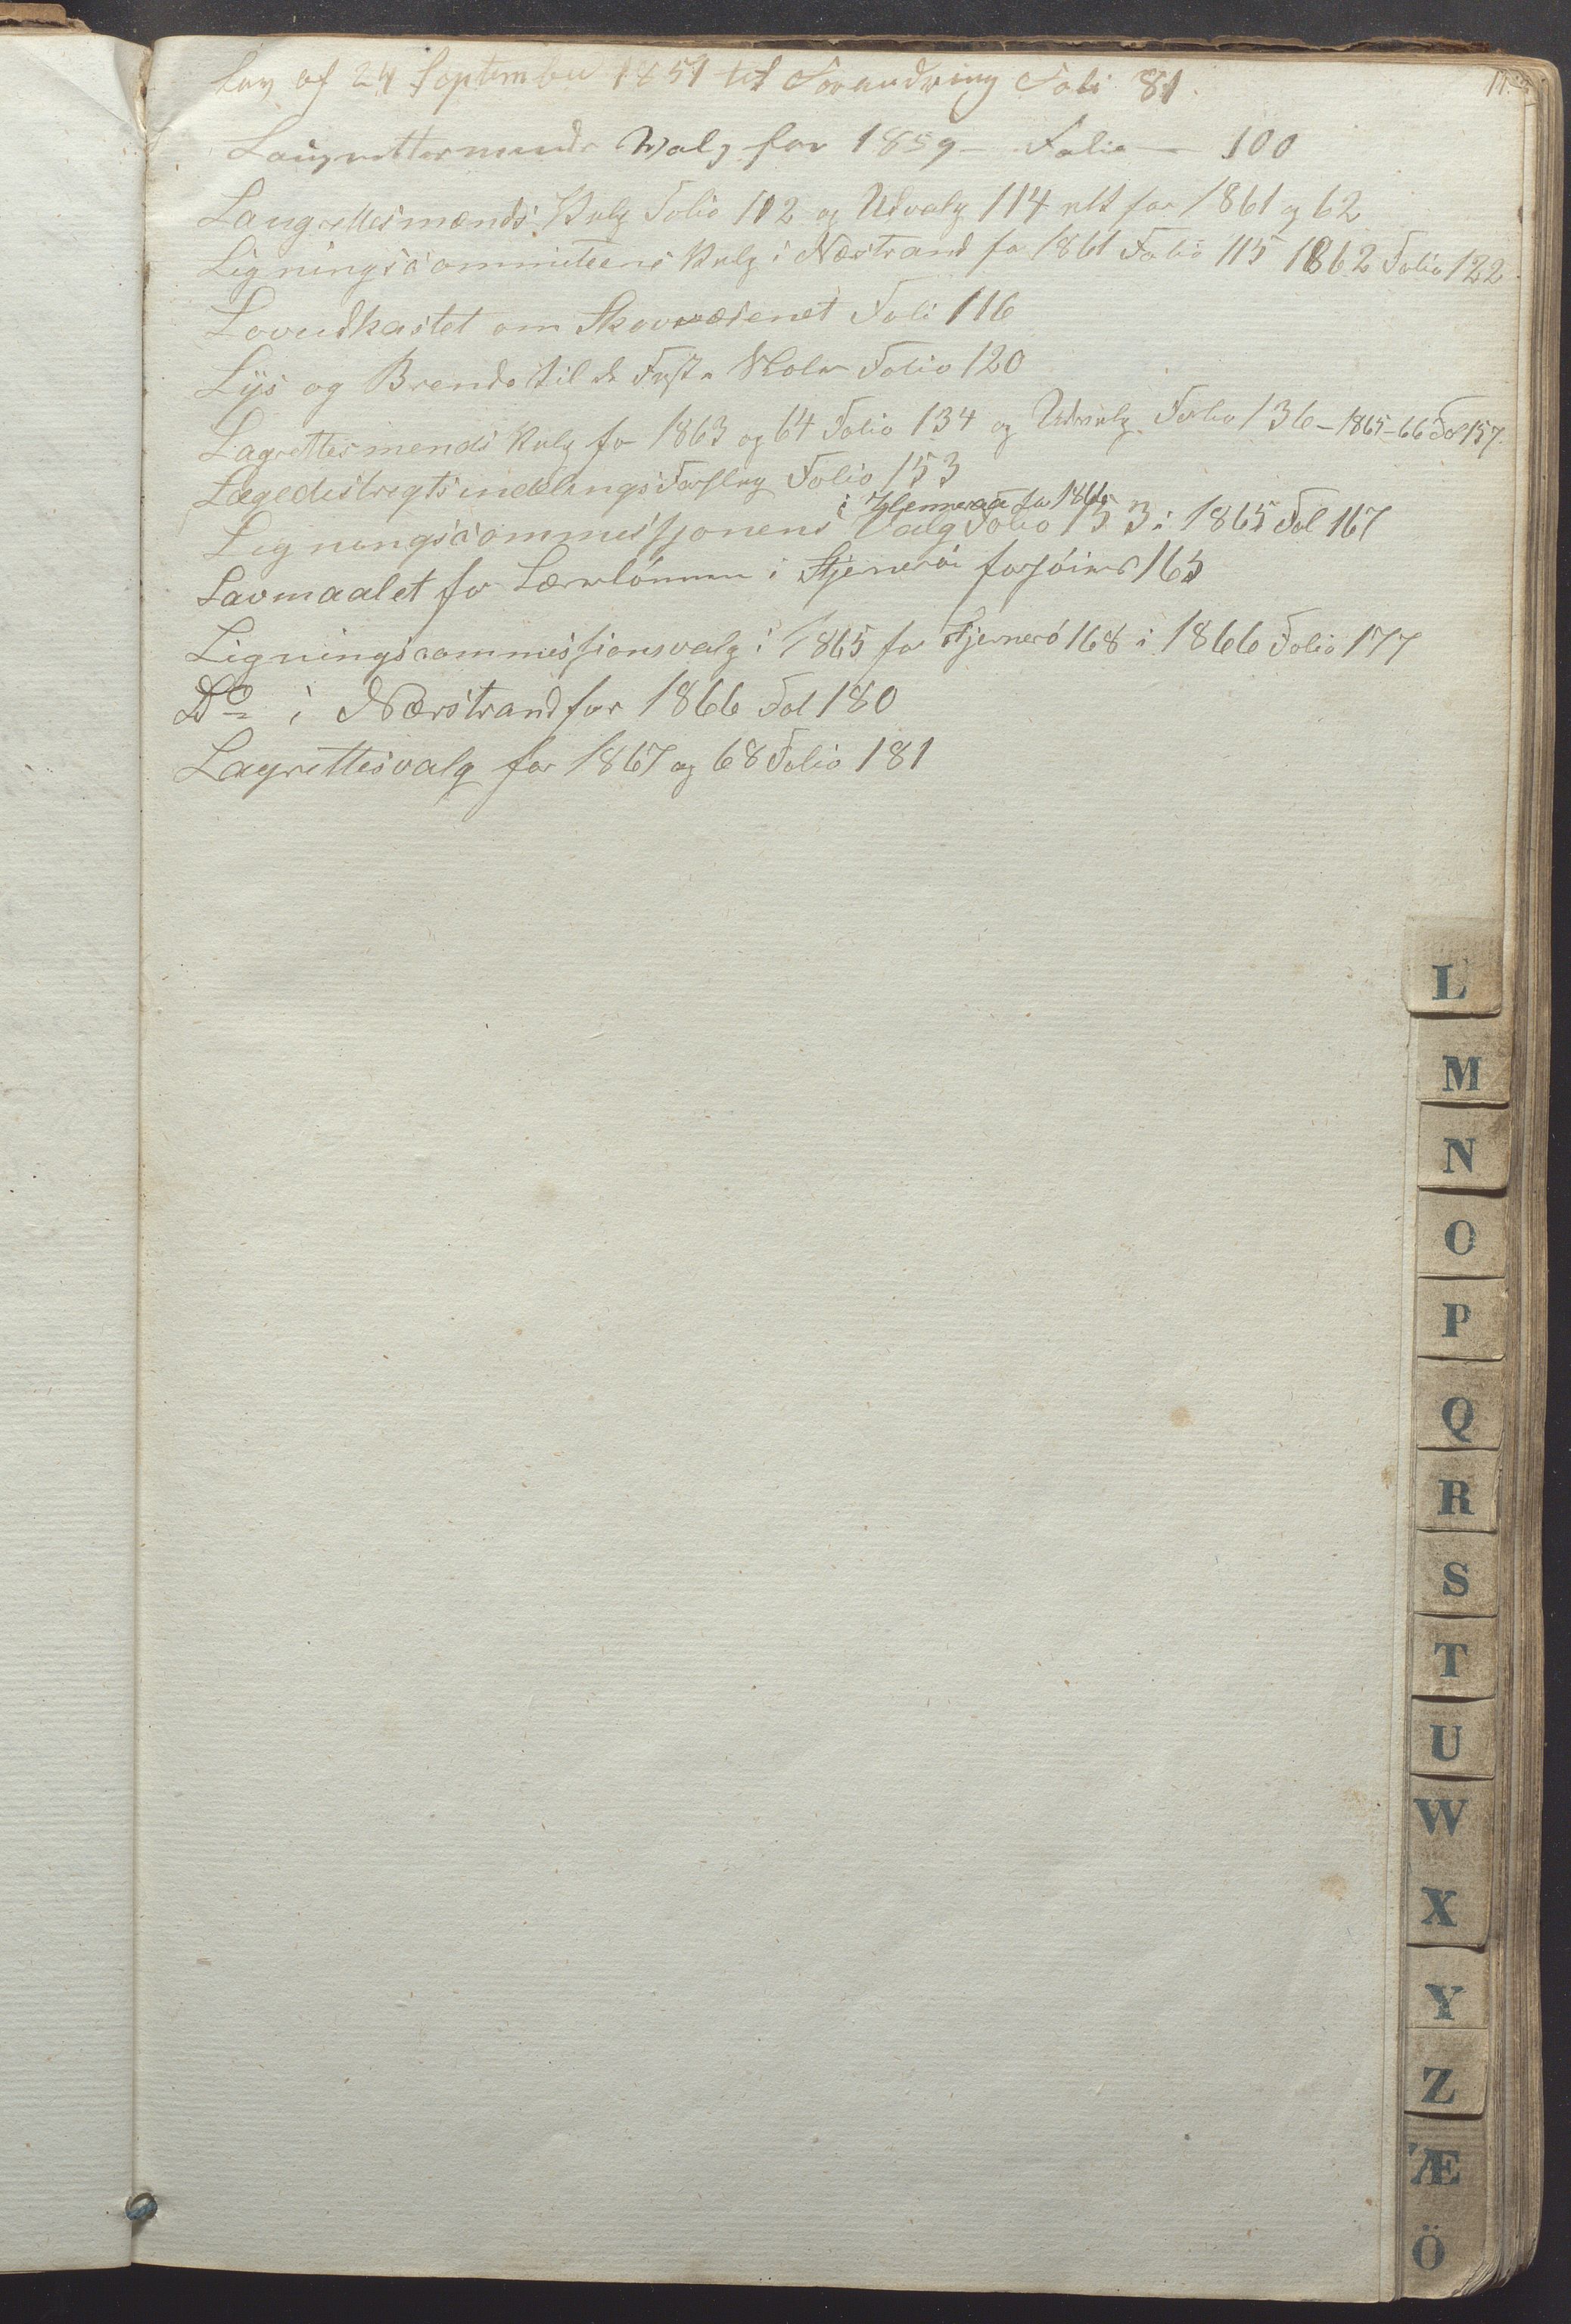 Lov af 24 September 1851 til Forandring Foli 81.
Laugrettesmends Walg for 1859 - Folio - 100
Laugrettesmænds Valg Folio 112 og Udvalg 114 alt for 1861 og 62
Ligningscommiteens Valg i Nærstrand for 1861 Folio 115 1862 Folio 122
Lovudkastet om Skovvæsenet Foli 116
Lys og Brende til de Faste Skoler Folio 120
Lagrettesmends Valg for 1863 og 64 Folio 134 og Udvalg Folio 136 - 1865-66 Fol 157.
Lægedistrigtsindelings Forslag Folio 153
i for 1864
Ligningscommissjonens Valg Folio 153 i 1865 Fol 167
Lavmaalet for Lærerlönnen i Stjerneröi 165
Ligningscommissionsvalg i 1865 for Stjernerö 168 i 1866 Folio 177
Do i Nærstrand for 1866 Fol 180
Lagrettesvalg for 1867 og 68 Folio 181
L
M
N
O
P
Q
R
S
T
U
W
X
Y
Z
Æ
Ö